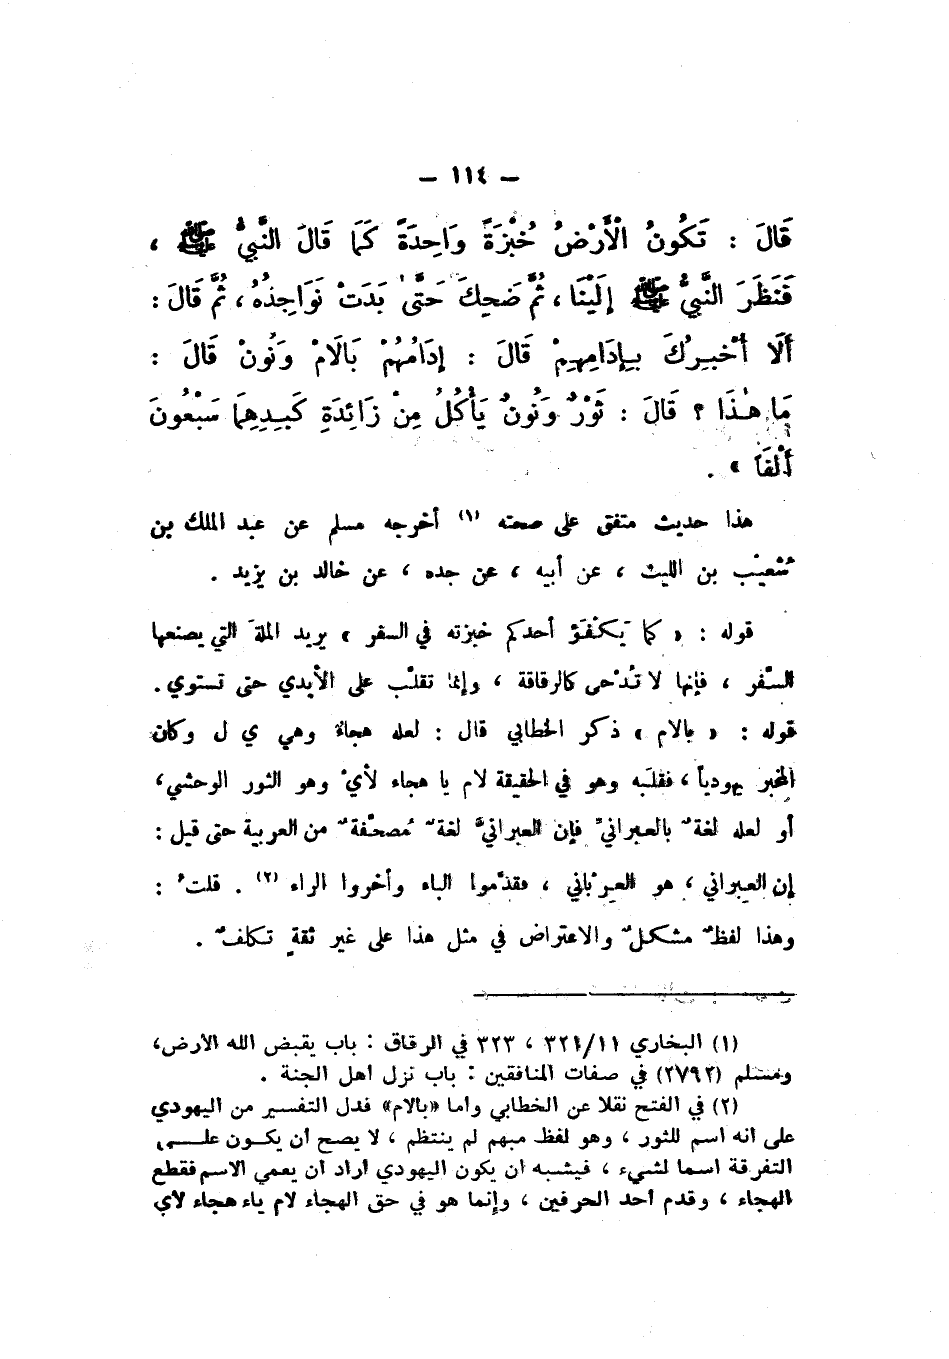 – ١١٤ –
قَالَ : تَكُونُ الْأَرْضُ خُبْزَةً وَاحِدَةً كَمَا قَالَ النَّبِيُّ ﷺ ،
فَنَظَرَ النَّبِيُّ ﷺ إِلَيْنَا ، ثُمَّ ضَحِكَ حَتَّىٰ بَدَتْ نَوَاجِذُهُ ، ثُمَّ قَالَ :
أَلَا أُخْبِرُكَ بِإِدَامِهِمْ قَالَ : إِدَامُهُمْ بَالَامْ وَنُونْ قَالَ :
مَا هٰذَا ؟ قَالَ : ثَوْرٌ وَنُونٌ يَأْكُلُ مِنْ زَائِدَةِ كَبِدِهِمَا سَبْعُونَ
أَلْفَاً » .
هذا حديث متفق على صحته (١) أخرجه مسلم عن عبد الملك بن
شُعيْب بن الليث ، عن أبيه ، عن جده ، عن خالد بن يزيد .
قوله : « كما يَكْفَؤ أحدكم خبزته في السفر » يريد الملةَ التي يصنعها
السَّفر ، فإنها لا تُدْحى كالرقاقة ، وإنما تقلَّب على الأيدي حتى تستوي .
قوله : « بالام » ذكر الخطابي قال : لعله هجاءً وهي ي ل وكان
المخبر يهودياً ، فقلَبه وهو في الحقيقة لام يا هجاء لأيْ وهو الثور الوحشي ،
أو لعله لغةٌ بالعبرانيِّ فإن العبرانيَّ لغةٌ مُصحَّفةٌ من العربية حتى قيل :
إن العبراني ، هو العرْباني ، فقدَّموا الباء وأخروا الراء (٢) . قلتُ :
وهذا لفظٌ مشكلٌ والاعتراض في مثل هذا على غير ثقةٍ تكلفٌ .
(١) البخاري ٣٢١/١١ ، ٣٢٣ في الرقاق : باب يقبض الله الأرض،
ومسلم (٢٧٩٢) في صفات المنافقين : باب نزل أهل الجنة .
(٢) في الفتح نقلا عن الخطابي وأما «بالام» فدل التفسير من اليهودي
على أنه اسم للثور ، وهو لفظ مبهم لم ينتظم ، لا يصح أن يكون على
التفرقة اسما لشيء ، فيشبه أن يكون اليهودي أراد أن يعمي الاسم فقطع
الهجاء ، وقدم أحد الحرفين ، وإنما هو في حق الهجاء لام ياء هجاء لأي